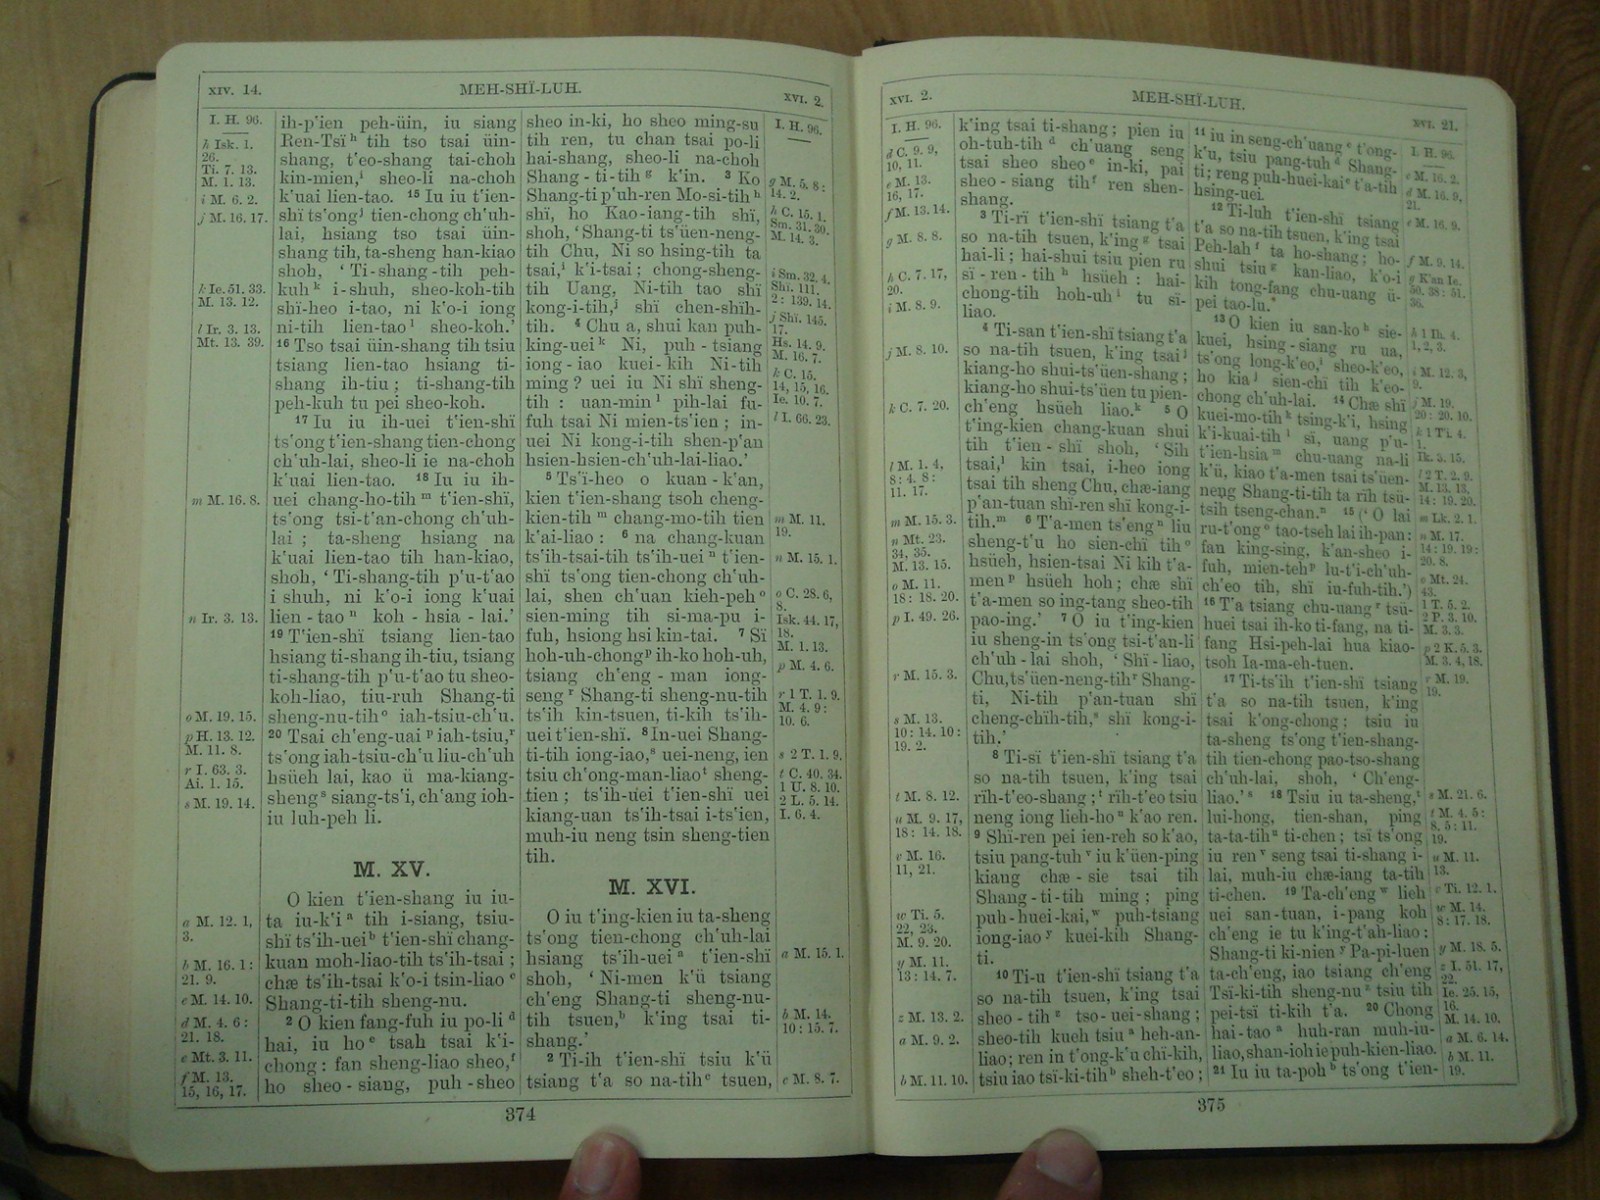 XIV. 14.
MEH-SHÏ-LUH.
XVI. 2.
I. H. 96.
h Isk. 1.
26.
Ti. 7. 13.
M. 1. 13.
i M. 6. 2.
j M. 16. 17.
k Ie. 51. 33.
M. 13. 12.
l Ir. 3. 13.
Mt. 13. 39.
m M. 16. 8.
n Ir. 3. 13.
o M. 19. 15.
p H. 13. 12.
M. 11. 8.
r I. 63. 3.
Ai. 1. 15.
s M. 19. 14.
a M. 12. 1,
3.
b M. 16. 1:
21. 9.
c M. 14. 10.
d M. 4. 6:
21. 18.
e Mt. 3. 11.
f M. 13.
15, 16, 17.
ih-p'ien peh-üin, iu siang
Ren-Tsï h tih tso tsai üin-
shang, t'eo-shang tai-choh
kin-mien, i sheo-li na-choh
k'uai lien-tao. 15 Iu iu t'ien-
shï ts'ong j tien-chong ch'uh-
lai, hsiang tso tsai üin-
shang tih, ta-sheng han-kiao
shoh, ‘ Ti-shang-tih peh-
kuh k i-shuh, sheo-koh-tih
shï-heo i-tao, ni k'o-i iong
ni-tih lien-tao l sheo-koh.’
16 Tso tsai üin-shang tih tsiu
tsiang lien-tao hsiang ti-
shang ih-tiu ; ti-shang-tih
peh-kuh tu pei sheo-koh.
17 Iu iu ih-uei t'ien-shï
ts'ong t'ien-shang tien-chong
ch'uh-lai, sheo-li ie na-choh
k'uai lien-tao. 18 Iu iu ih-
uei chang-ho-tih m t'ien-shï,
ts'ong tsi-t'an-chong ch'uh-
lai ; ta-sheng hsiang na
k'uai lien-tao tih han-kiao,
shoh, ‘ Ti-shang-tih p'u-t'ao
i shuh, ni k'o-i iong k'uai
lien - tao n koh - hsia - lai.’
19 T'ien-shï tsiang lien-tao
hsiang ti-shang ih-tiu, tsiang
ti-shang-tih p'u-t'ao tu sheo-
koh-liao, tiu-ruh Shang-ti
sheng-nu-tih o iah-tsiu-ch'u.
20 Tsai ch'eng-uai p iah-tsiu, r
ts'ong iah-tsiu-ch'u liu-ch'uh
hsüeh lai, kao ü ma-kiang-
sheng s siang-ts'i, ch'ang ioh-
iu luh-peh li.
M. XV.
O kien t'ien-shang iu iu-
ta iu-k'i a tih i-siang, tsiu-
shï ts'ih-uei b t'ien-shï chang-
kuan moh-liao-tih ts'ih-tsai ;
chæ ts'ih-tsai k'o-i tsin-liao c
Shang-ti-tih sheng-nu.
2 O kien fang-fuh iu po-li d
hai, iu ho e tsah tsai k'i-
chong : fan sheng-liao sheo, f
ho sheo - siang, puh - sheo
sheo in-ki, ho sheo ming-su
tih ren, tu chan tsai po-li
hai-shang, sheo-li na-choh
Shang - ti - tih g k'in. 3 Ko
Shang-ti p'uh-ren Mo-si-tih h
shï, ho Kao-iang-tih shï,
shoh, ‘ Shang-ti ts'üen-neng-
tih Chu, Ni so hsing-tih ta
tsai, i k'i-tsai ; chong-sheng-
tih Uang, Ni-tih tao shï
kong-i-tih, j shï chen-shïh-
tih. 4 Chu a, shui kan puh-
king-uei k Ni, puh - tsiang
iong - iao kuei - kih Ni-tih
ming ? uei iu Ni shï sheng-
tih : uan-min l pih-lai fu-
fuh tsai Ni mien-ts'ien ; in-
uei Ni kong-i-tih shen-p'an
hsien-hsien-ch'uh-lai-liao.’
5 Ts'ï-i-heo o kuan - k'an,
kien t'ien-shang tsoh cheng-
kien-tih m chang-mo-tih tien
k'ai-liao : 6 na chang-kuan
ts'ih-tsai-tih ts'ih-uei n t'ien-
shï ts'ong tien-chong ch'uh-
lai, shen ch'uan kieh-peh o
sien-ming tih si-ma-pu i-
fuh, hsiong hsi kin-tai. 7 Sï
hoh-uh-chong p ih-ko hoh-uh,
tsiang ch'eng - man iong-
seng r Shang-ti sheng-nu-tih
ts'ih kin-tsuen, ti-kih ts'ih-
uei t'ien-shï. 8 In-uei Shang-
ti-tih iong-iao, s uei-neng, ien
tsiu ch'ong-man-liao t sheng-
tien ; ts'ih-uei t'ien-shï uei
kiang-uan ts'ih-tsai i-ts'ien,
muh-iu neng tsin sheng-tien
tih.
M. XVI.
O iu t'ing-kien iu ta-sheng
ts'ong tien-chong ch'uh-lai
hsiang ts'ih-uei a t'ien-shï
shoh, ‘ Ni-men k'ü tsiang
ch'eng Shang-ti sheng-nu-
tih tsuen, b k'ing tsai ti-
shang.’
2 Ti-ih t'ien-shï tsiu k'ü
tsiang t'a so na-tih c tsuen,
I. H. 96.
g M. 5. 8:
14. 2.
h C. 15. 1.
Sm. 31. 30.
M. 14. 3.
i Sm. 32. 4.
Shï. 111.
2: 139. 14.
j Shï. 145.
17.
Hs. 14. 9.
M. 16. 7.
k C. 15.
14, 15, 16.
Ie. 10. 7.
l I. 66. 23.
m M. 11.
19.
n M. 15. 1.
o C. 28. 6,
8.
Isk. 44. 17,
18.
M. 1. 13.
p M. 4. 6.
r 1 T. 1. 9.
M. 4. 9:
10. 6.
s 2 T. 1. 9.
t C. 40. 34.
1 U. 8. 10.
2 L. 5. 14.
I. 6. 4.
a M. 15. 1.
b M. 14.
10: 15. 7.
c M. 8. 7.
374
XVI. 2.
MEH-SHÏ-LUH.
XVI. 21.
I. H. 96.
d C. 9. 9,
10, 11.
e M. 13.
16, 17.
f M. 13. 14.
g M. 8. 8.
h C. 7. 17,
20.
i M. 8. 9.
j M. 8. 10.
k C. 7. 20.
l M. 1. 4,
8: 4. 8:
11. 17.
m M. 15. 3.
n Mt. 23.
34, 35.
M. 13. 15.
o M. 11.
18: 18. 20.
p I. 49. 26.
r M. 15. 3.
s M. 13.
10: 14. 10:
19. 2.
t M. 8. 12.
u M. 9. 17,
18: 14. 18.
v M. 16.
11, 21.
w Ti. 5.
22, 23.
M. 9. 20.
y M. 11.
13: 14. 7.
z M. 13. 2.
a M. 9. 2.
b M. 11. 10.
k'ing tsai ti-shang ; pien iu
oh-tuh-tih d ch'uang seng
tsai sheo sheo e in-ki, pai
sheo - siang tih f ren shen-
shang.
3 Ti-rï t'ien-shï tsiang t'a
so na-tih tsuen, k'ing g tsai
hai-li ; hai-shui tsiu pien ru
sï - ren - tih h hsüeh : hai-
chong-tih hoh-uh i tu sï-
liao.
4 Ti-san t'ien-shï tsiang t'a
so na-tih tsuen, k'ing tsai j
kiang-ho shui-ts'üen-shang ;
kiang-ho shui-ts'üen tu pien-
ch'eng hsüeh liao. k 5 O
t'ing-kien chang-kuan shui
tih t'ien - shï shoh, ‘ Sih
tsai, l kin tsai, i-heo iong
tsai tih sheng Chu, chæ-iang
p'an-tuan shï-ren shï kong-i-
tih. m 6 T'a-men ts'eng n liu
sheng-t'u ho sien-chï tih o
hsüeh, hsien-tsai Ni kih t'a-
men p hsüeh hoh ; chæ shï
t'a-men so ing-tang sheo-tih
pao-ing.’ 7 O iu t'ing-kien
iu sheng-in ts'ong tsi-t'an-li
ch'uh - lai shoh, ‘ Shï - liao,
Chu, ts'üen-neng-tih r Shang-
ti, Ni-tih p'an-tuan shï
cheng-chïh-tih, s shï kong-i-
tih.’
8 Ti-sï t'ien-shï tsiang t'a
so na-tih tsuen, k'ing tsai
rïh-t'eo-shang ; t rïh-t'eo tsiu
neng iong lieh-ho u k'ao ren.
9 Shï-ren pei ien-reh so k'ao,
tsiu pang-tuh v iu k'üen-ping
kiang chæ - sie tsai tih
Shang - ti - tih ming ; ping
puh-huei-kai, w puh-tsiang
iong-iao y kuei-kih Shang-
ti.
10 Ti-u t'ien-shï tsiang t'a
so na-tih tsuen, k'ing tsai
sheo - tih z tso- uei-shang ;
sheo-tih kueh tsiu a heh-an-
liao ; ren in t'ong-k'u chï-kih,
tsiu iao tsï-ki-tih b sheh-t'eo ;
11 iu in seng-ch'uang c t'ong-
k'u, tsiu pang-tuh d Shang-
ti ; reng puh-huei-kai e t'a-tih
hsing-uei.
12 Ti-luh t'ien-shï tsiang
t'a so na-tih tsuen, k'ing tsai
Peh-lah f ta ho-shang ; ho-
shui tsiu g kan-liao, k'o-i
kih tong-fang chu-uang ü-
pei tao-lu.
13 O kien iu san-ko h sie-
kuei, hsing-siang ru ua,
ts'ong long-k'eo, i sheo-k'eo,
ho kia j sien-chï tih k'eo-
chong ch'uh-lai. 14 Chæ shï
kuei-mo-tih k tsing-k'i, hsing
k'i-kuai-tih l sï, uang p'u-
t'ien-hsia m chu-uang na-li
k'ü, kiao t'a-men tsai ts'üen-
neng Shang-ti-tih ta rïh tsü-
tsih tseng-chan. n 15 (‘ O lai
ru-t'ong o tao-tseh lai ih-pan :
fan king-sing, k'an-sheo i-
fuh, mien-teh p lu-t'i-ch'uh-
ch'eo tih, shï iu-fuh-tih.’)
16 T'a tsiang chu-uang r tsü-
huei tsai ih-ko ti-fang, na ti-
fang Hsi-peh-lai hua kiao-
tsoh Ia-ma-eh-tuen.
17 Ti-ts'ih t'ien-shï tsiang
t'a so na-tih tsuen, k'ing
tsai k'ong-chong ; tsiu iu
ta-sheng ts'ong t'ien-shang-
tih tien-chong pao-tso-shang
ch'uh-lai, shoh, ‘ Ch'eng-
liao.’ s 18 Tsiu iu ta-sheng, t
lui-hong, tien-shan, ping
ta-ta-tih u ti-chen ; tsï ts'ong
iu ren v seng tsai ti-shang i-
lai, muh-iu chæ-iang ta-tih
ti-chen. 19 Ta-ch'eng w lieh
uei san-tuan, i-pang koh
ch'eng ie tu k'ing-t'ah-liao :
Shang-ti ki-nien y Pa-pi-luen
ta-ch'eng, iao tsiang ch'eng
Tsï-ki-tih sheng-nu z tsiu tih
pei-tsï ti-kih t'a. 20 Chong
hai-tao a huh-ran muh-iu-
liao, shan-ioh ie puh-kien-liao.
21 Iu iu ta-poh b ts'ong t'ien-
I. H. 96.
c M. 16. 2.
d M. 16. 9,
21.
e M. 16. 9.
f M. 9. 14.
g K'an Ie.
50. 38: 51.
36.
h 1 Ih. 4.
1, 2, 3.
i M. 12. 3,
9.
j M. 19.
20: 20. 10.
k 1 Ti. 4.
1.
l 2 T. 2. 9.
M. 13. 13,
14: 19. 20.
m Lk. 2. 1.
n M. 17.
14: 19. 19:
20. 8.
o Mt. 24.
43.
1 T. 5. 2.
2 P. 3. 10.
M. 3. 3.
p 2 K. 5. 3.
M. 3. 4, 18.
r M. 19.
19.
s M. 21. 6.
t M. 4. 5:
8. 5: 11.
19.
u M. 11.
13.
v Ti. 12. 1.
w M. 14.
8: 17. 18.
y M. 18. 5.
z I. 51. 17,
22.
Ie. 25. 15,
16.
M. 14. 10.
a M. 6. 14.
b M. 11.
19.
375